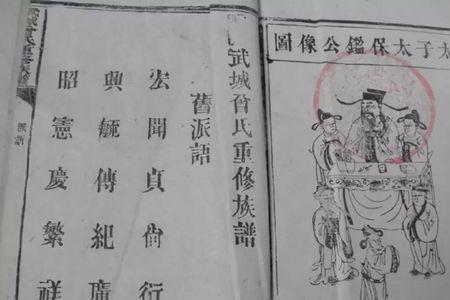 太子太保鑑公像圖
武城曾氏重修族譜
舊派語
宏聞貞尚衍
興毓傳紀廣
昭憲慶繁祥
派語